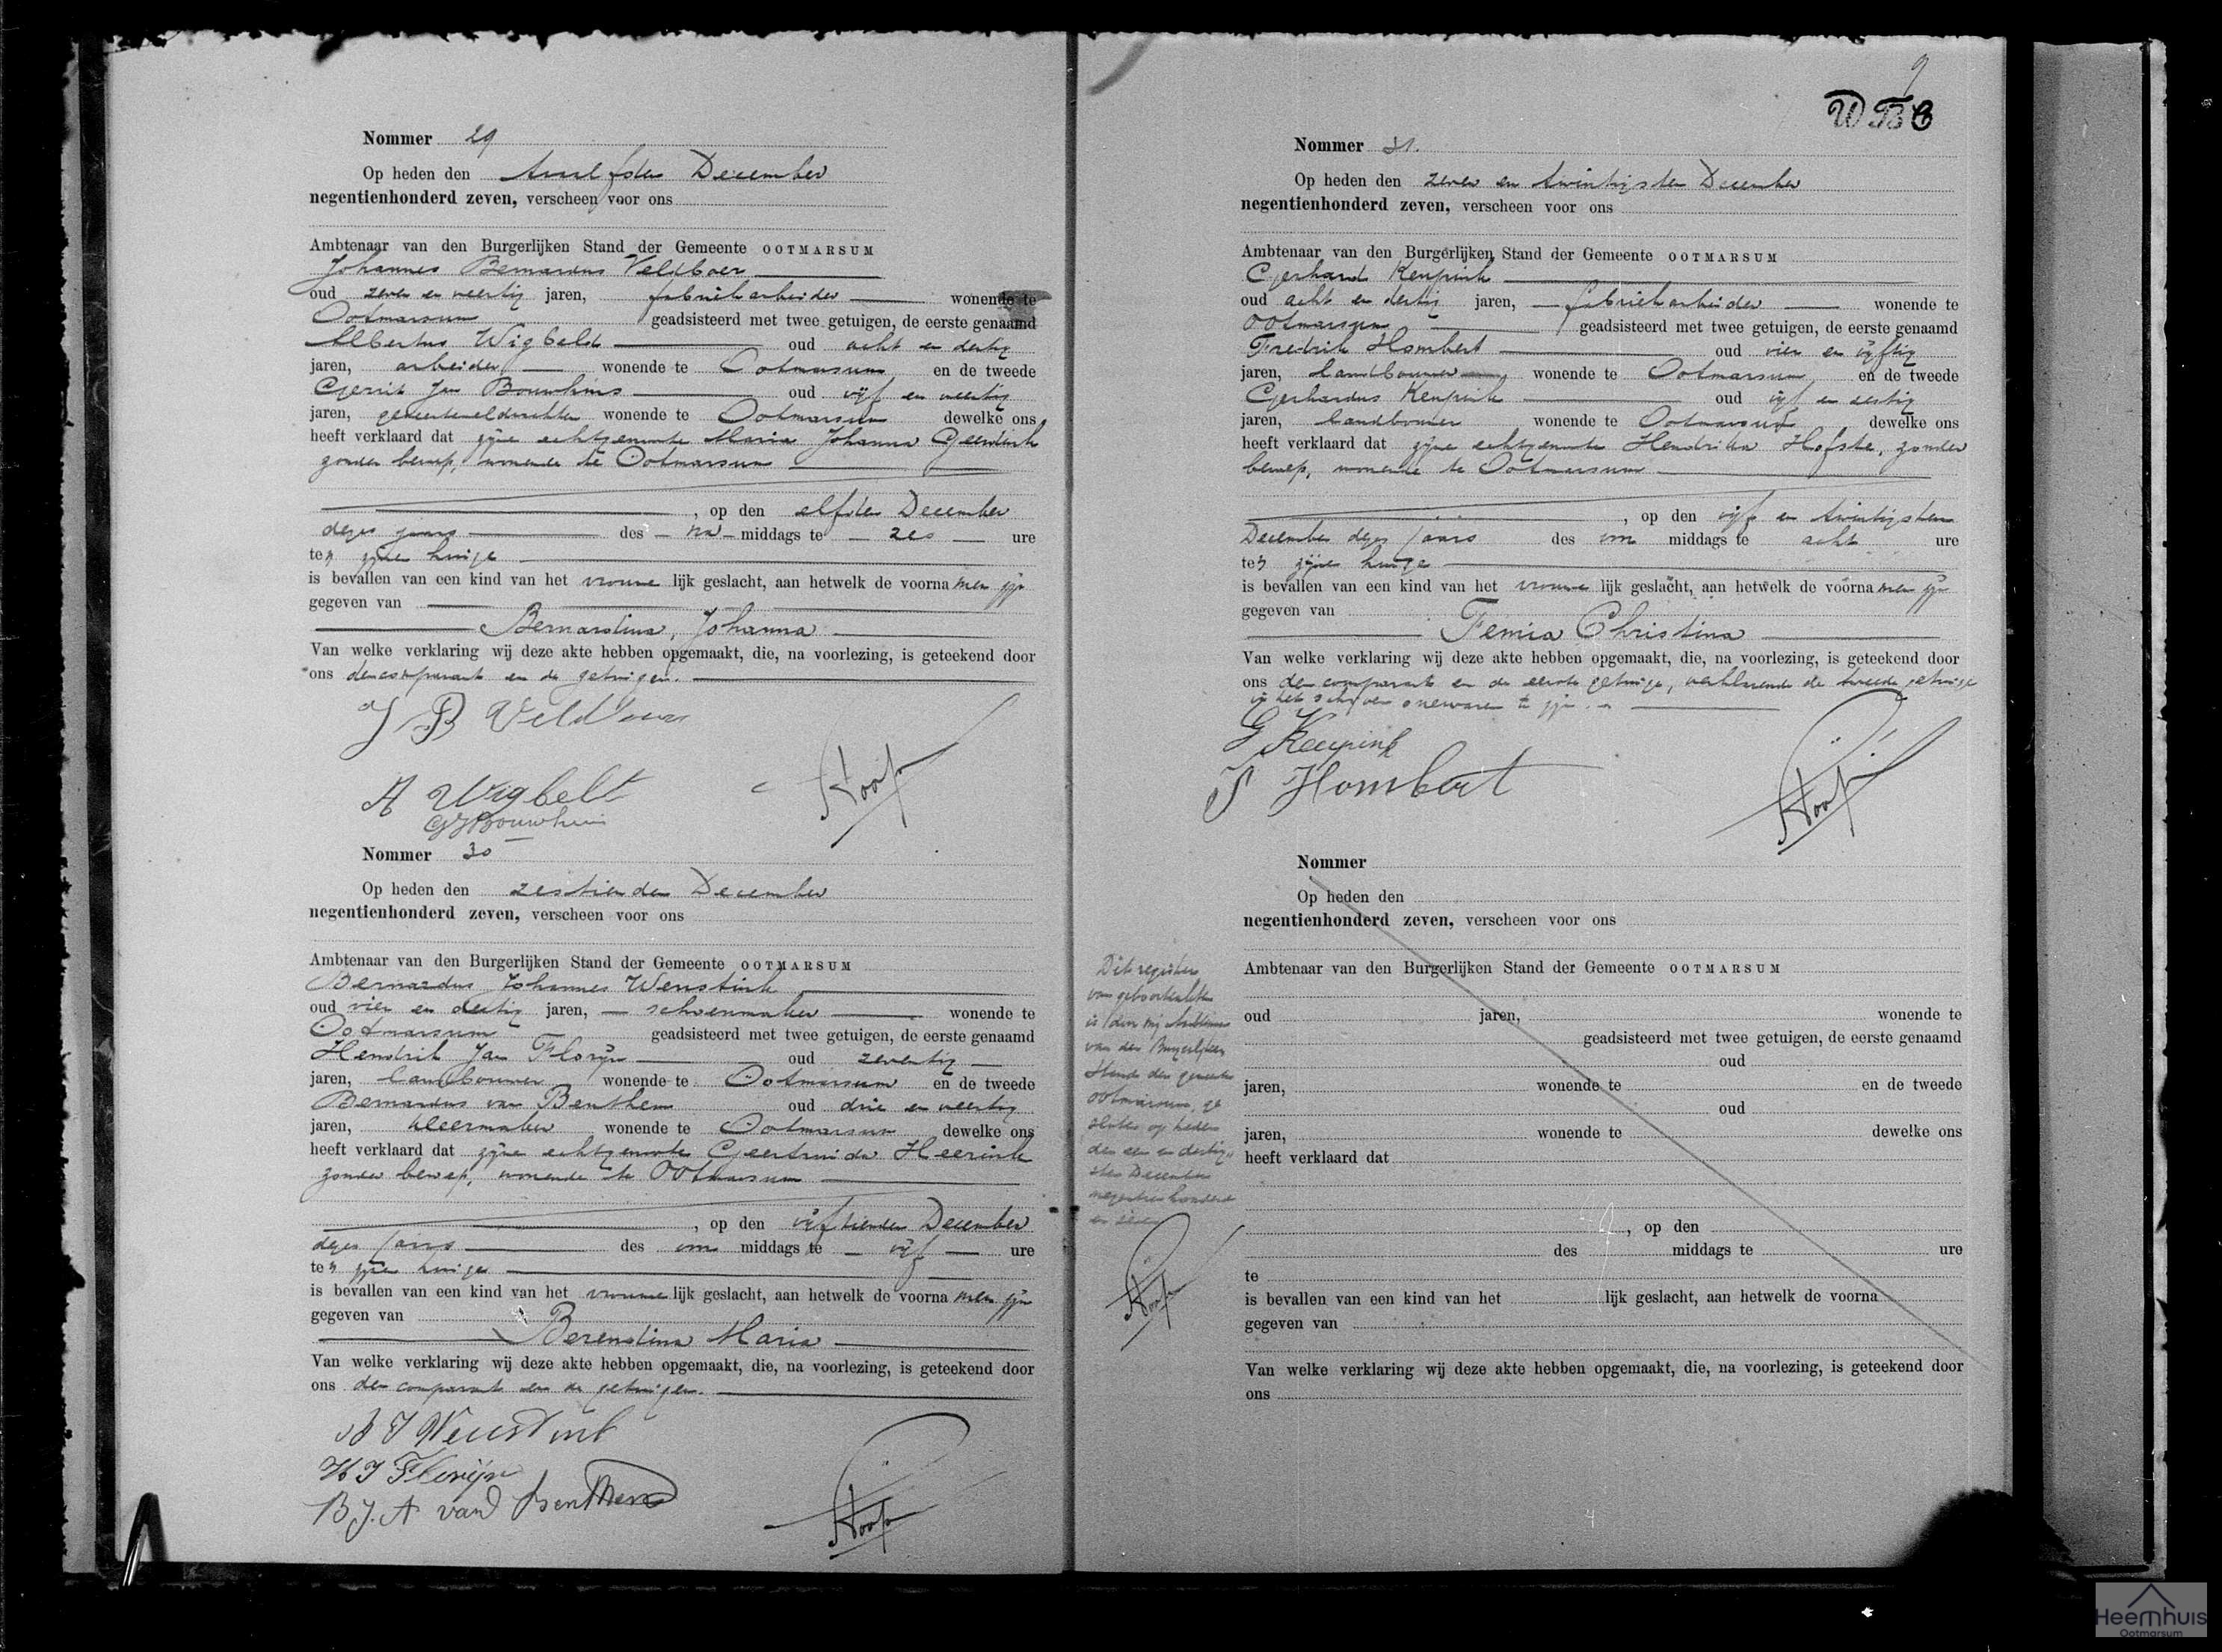 Nommer 29
Op heden den twaalfden December
negentienhonderd zeven, verscheen voor ons
Ambtenaar van den Burgerlijken Stand der Gemeente OOTMARSUM
Johannes Bernardus Veldboer
oud zeven en veertig jaren, fabriekarbeider wonende te
Ootmarsum geadsisteerd met twee getuigen, de eerste genaamd
Albertus Wigbeld oud acht en dertig
jaren, arbeider wonende te Ootmarsum en de tweede
Gerrit Jan Bouwhuis oud vijf en veertig
jaren, gemeenteveldwachter wonende te Ootmarsum dewelke ons
heeft verklaard dat zijne echtgenoote Maria Johanna Geerdink
zonder beroep, wonende te Ootmarsum
, op den elfden December
dezes jaars des na middags te zes ure
ten zijne huize
is bevallen van een kind van het vrouwe lijk geslacht, aan hetwelk de voorna men zijn
gegeven van
Bernardina, Johanna
Van welke verklaring wij deze akte hebben opgemaakt, die, na voorlezing, is geteekend door
ons den comparant en de getuigen.
J B Veldboer
A Wigbelt
GJ Bouwhuis
Nommer 30
Op heden den zestienden December
negentienhonderd zeven, verscheen voor ons
Ambtenaar van den Burgerlijken Stand der Gemeente OOTMARSUM
Bernardus Johannes Wenstink
oud vier en dertig jaren, schoenmaker wonende te
Ootmarsum geadsisteerd met twee getuigen, de eerste genaamd
Hendrik Jan Florijn oud zeventig
jaren, landbouwer wonende te Ootmarsum en de tweede
Bernardus van Benthem oud drie en veertig
jaren, kleermaker wonende te Ootmarsum dewelke ons
heeft verklaard dat zijne echtgenoote Geertruida Heerink
zonder beroep, wonende te Ootmarsum
, op den vijftienden December
dezes jaars des voor middags te vijf ure
ten zijne huize
is bevallen van een kind van het vrouwe lijk geslacht, aan hetwelk de voorna men zijn
gegeven van
Berendina Maria
Van welke verklaring wij deze akte hebben opgemaakt, die, na voorlezing, is geteekend door
ons den comparant en de getuigen.
B J Wenstink
H J Florijn
B.J.A van Benthem
9
Nommer 31.
Op heden den zeven en twintigsten December
negentienhonderd zeven, verscheen voor ons
Ambtenaar van den Burgerlijken Stand der Gemeente OOTMARSUM
Gerhard Keupink
oud acht en dertig jaren, fabriekarbeider wonende te
Ootmarsum geadsisteerd met twee getuigen, de eerste genaamd
Fredrik Hombert oud vier en vijftig
jaren, landbouwer wonende te Ootmarsum en de tweede
Gerhardus Keupink oud vijf en zestig
jaren, landbouwer wonende te Ootmarsum dewelke ons
heeft verklaard dat zijne echtgenoote Hendrika Hofste, zonder
beroep, wonende te Ootmarsum
, op den vijf en twintigsten
December dezes jaars des voor middags te acht ure
ten zijnen huize
is bevallen van een kind van het vrouwe lijk geslacht, aan hetwelk de voorna men zijn
gegeven van
Femia Christina
Van welke verklaring wij deze akte hebben opgemaakt, die, na voorlezing, is geteekend door
ons den comparant en de eerste getuige, verklarende de tweede getuige
in het schrijven onervaren te zijn.
G Keupink
F Hombert
Nommer
Op heden den
negentienhonderd zeven, verscheen voor ons
Ambtenaar van den Burgerlijken Stand der Gemeente OOTMARSUM
oud jaren, wonende te
geadsisteerd met twee getuigen, de eerste genaamd
oud
jaren, wonende te en de tweede
oud
jaren, wonende te dewelke ons
heeft verklaard dat
, op den
des middags te ure
te
is bevallen van een kind van het lijk geslacht, aan hetwelk de voorna
gegeven van
Van welke verklaring wij deze akte hebben opgemaakt, die, na voorlezing, is geteekend door
ons
Dit register
van geboorteakten
is door mij Ambtenaar
van den Burgerlijken
Stand der gemeente
Ootmarsum, ge
sloten op heden
den een en dertig
sten December
negentienhonderd
en zeven
Heemhuis
Ootmarsum